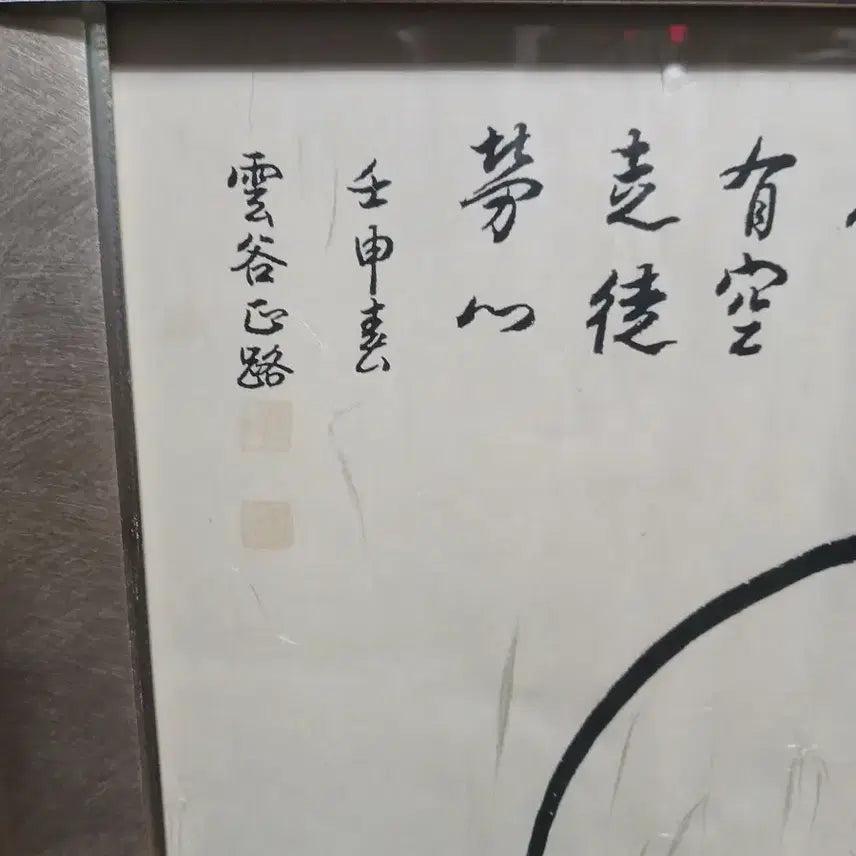 有空
走徒
勞心
壬申春
雲谷正路